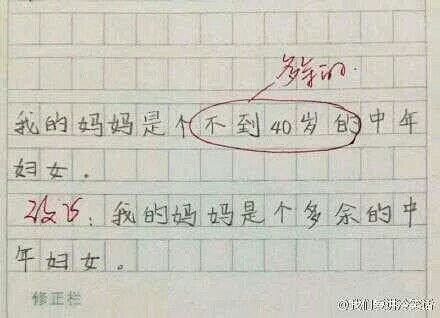 多余的.
我的妈妈是个不到40岁的中年
妇女.
改正：我的妈妈是个多余的中
年妇女。
修正栏